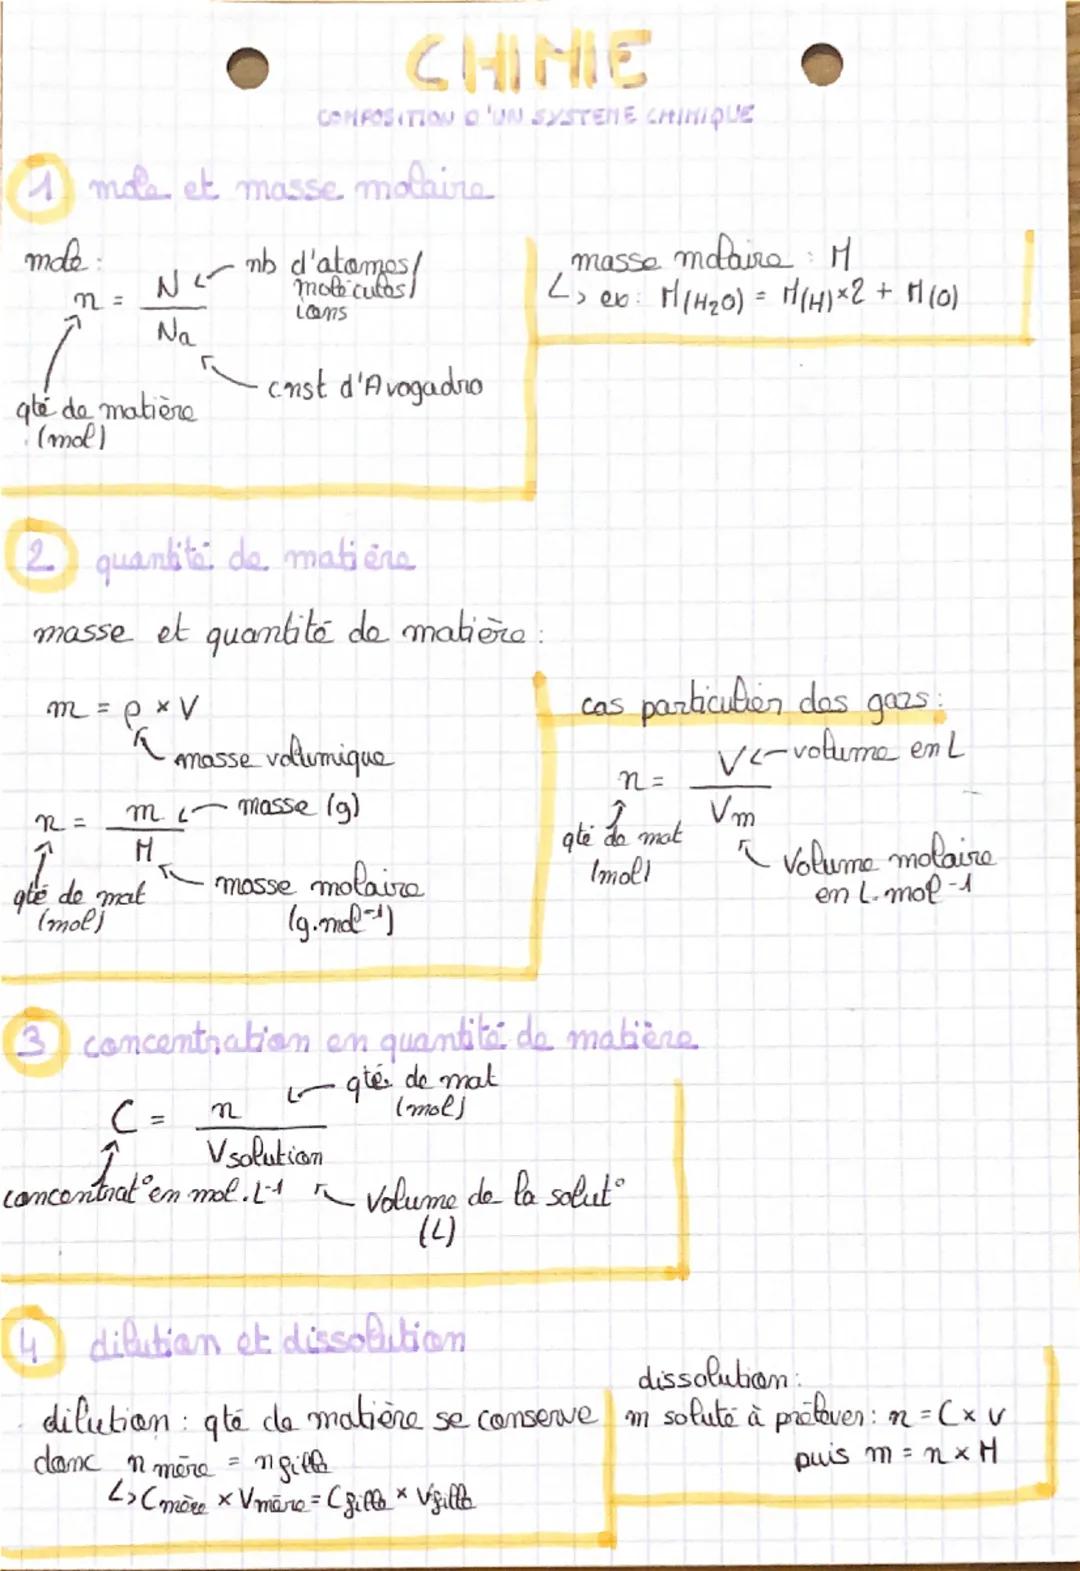 CHIMIE
COMPOSITION D'UN SYSTEME CHIMIQUE
1 mole et masse molaire
mole :
n = N / Na
nb d'atomes/
molécules/
ions
cnst d'Avogadro
qté de matière
(mol)
masse molaire : M
↳ ex : M(H2O) = M(H)×2 + M(O)
2 quantité de matière
masse et quantité de matière :
m = ρ × V
masse volumique
n = m / M
masse (g)
masse molaire
(g.mol-1)
qté de mat
(mol)
cas particulier des gazs :
n = V / Vm
volume en L
qté de mat
(mol)
Volume molaire
en L.mol-1
3 concentration en quantité de matière
C = n / Vsolution
qté de mat
(mol)
concentrat° en mol.L-1
Volume de la solut°
(L)
4 dilution et dissolution
dilution : qté de matière se conserve
donc n mère = n fille
↳ Cmère × Vmère = Cfille × Vfille
dissolution :
m soluté à prélever : n = C × V
puis m = n × M